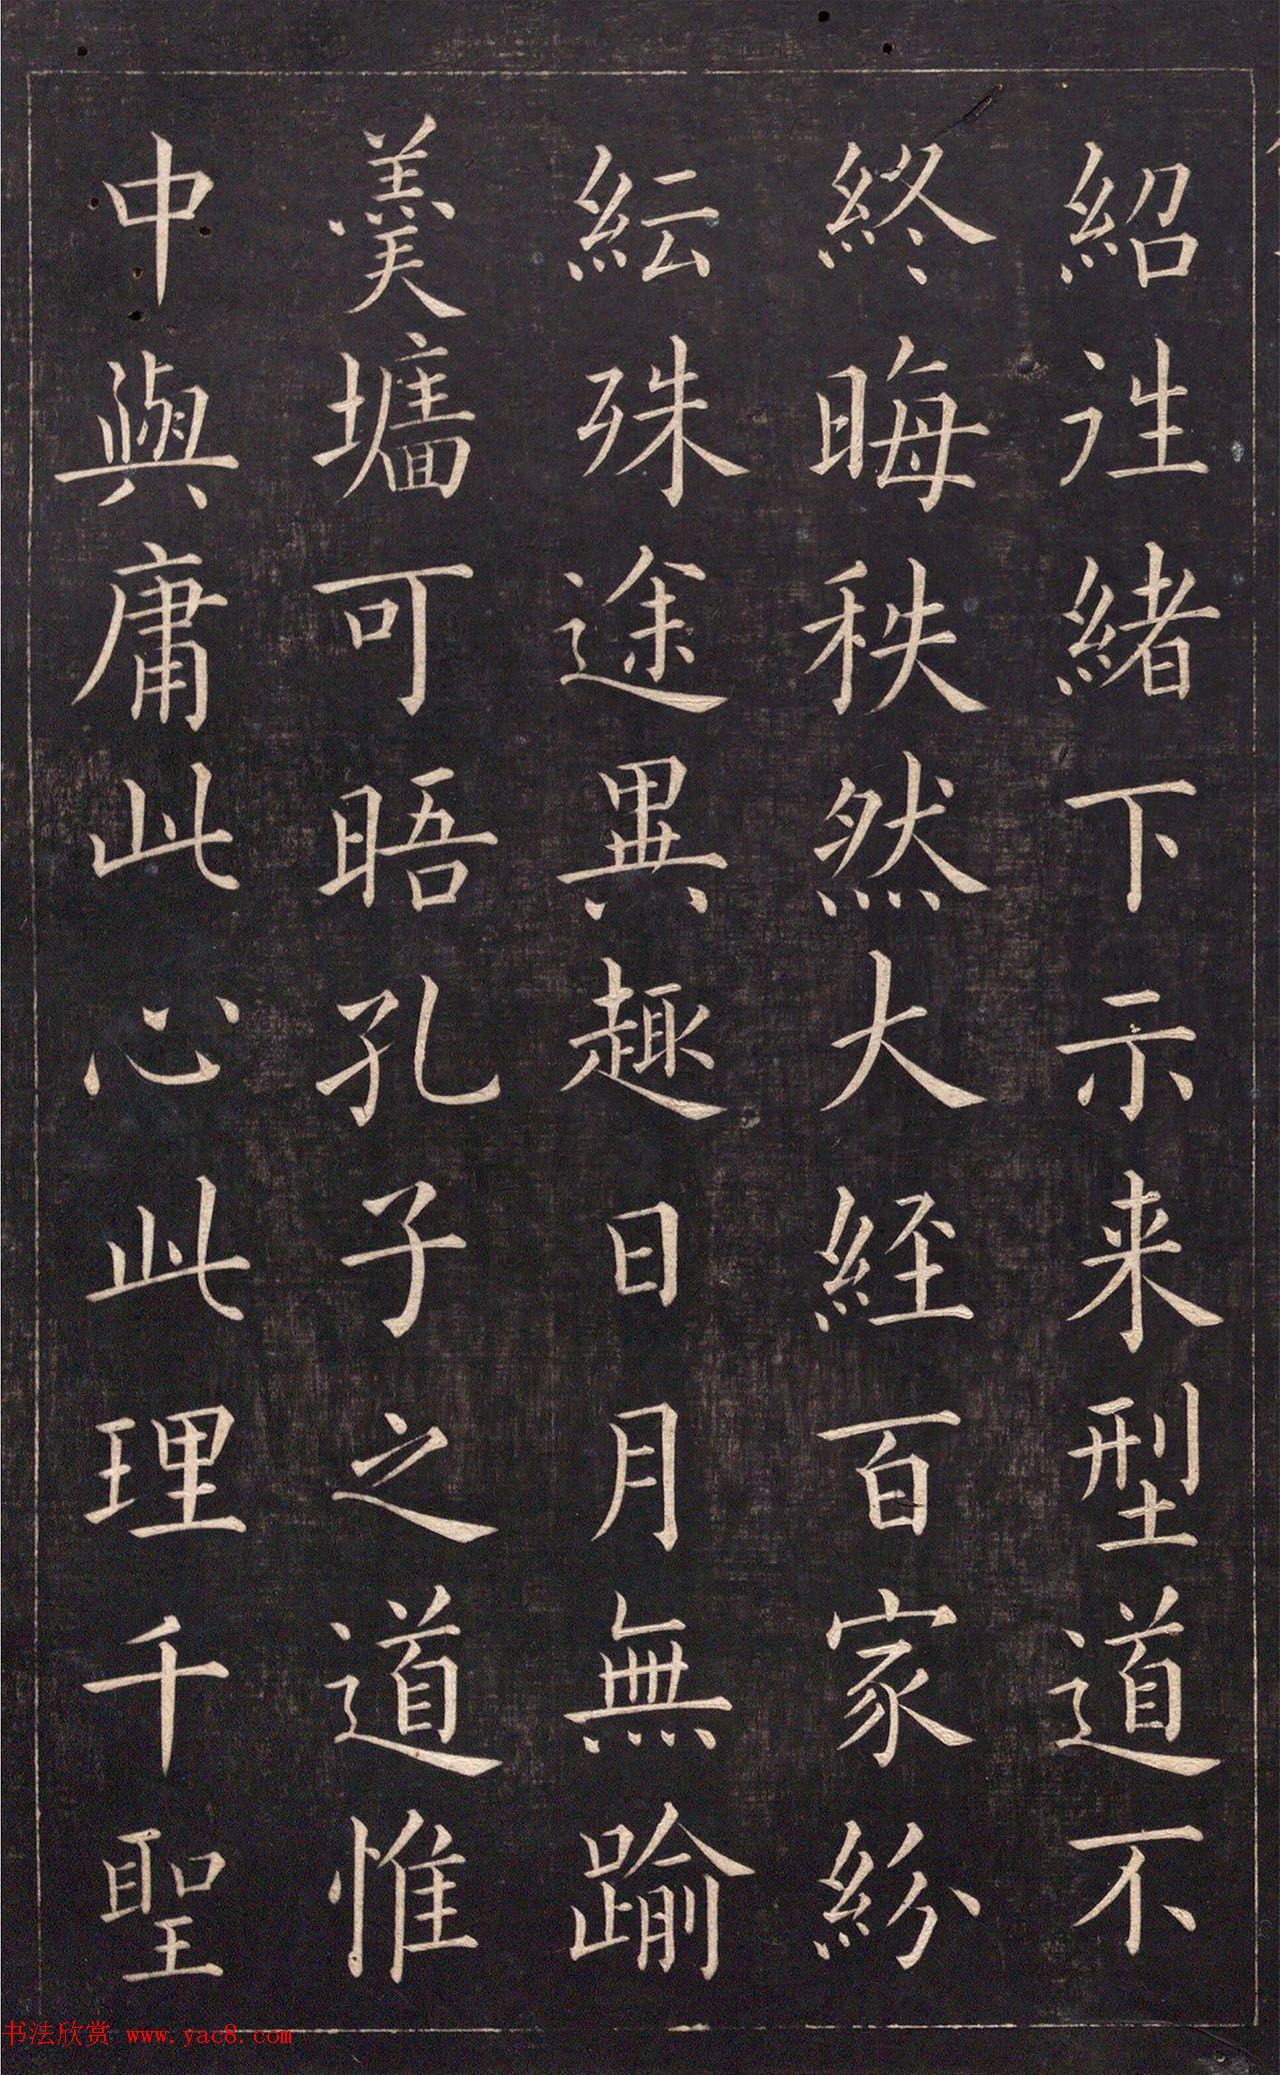 紹往緒下示来型道不
終晦秩然大経百家紛
紜殊途異趣日月無踰
羹墻可晤孔子之道惟
中與庸此心此理千聖
书法欣赏 www.yac8.com